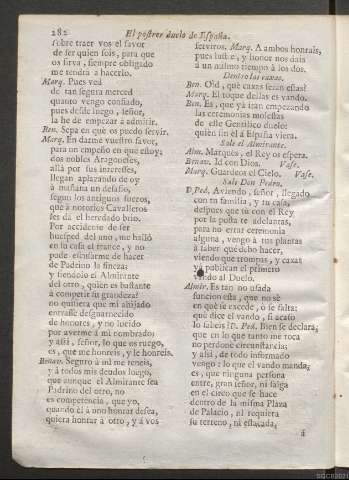 282
El postrer duelo de España.
sobre traer vos el favor
de ser quien sois, para que
os sirva, siempre obligado
me tendrá a hacerlo.
Marq. Pues ved
de tan segura merced
quanto vengo confiado,
pues desde luego, señor,
la he de empezar à admitir.
Ben. Sepa en què os puedo servir.
Marq. En darme vuestro favor,
para un empeño en que estoy;
dos nobles Aragoneses,
allà por sus interesses,
llegan aplazando de oy
à mañana un desafio,
segun los antiguos fueros,
que à notorios Cavalleros
les dà el heredado brio.
Por accidente de ser
huesped del uno, me hallò
en su casa el trance, y no
pude escusarme de hacer
de Padrino la fineza;
y siendolo el Almirante
del otro, quien es bastante
à competir su grandeza?
no quisiera que mi ahijado
entrasse desguarnecido
de honores, y no lucido
por averme à mi nombrado;
y assi, señor, lo que os ruego,
es, que me honreis, y le honreis.
Benav. Seguro à mi me teneis,
y à todos mis deudos luego,
que aunque el Almirante sea
Padrino del otro, no
es competencia, que yo,
quando èl à uno honrar desea,
quiera honrar à otro, y à vos
serviros. Marq. A ambos honrais,
pues lustre, y honor nos dais
à un mismo tiempo à los dos.
Dentro las caxas.
Ben. Oìd, què caxas seràn essas?
Marq. El toque dellas es vando.
Ben. Es, que yà iràn empezando
las ceremonias molestas
de esse Gentilico duelo:
quien sin èl à España viera.
Sale el Almirante.
Alm. Marquès, el Rey os espera.
Benav. Id con Dios. Vase.
Marq. Guardeos el Cielo. Vase.
Sale Don Pedro.
D.Ped. Aviendo, señor, llegado
con tu familia, y tu casa,
despues que tù con el Rey
por la posta te adelantas,
para no errar ceremonia
alguna, vengo à tus plantas
à saber què debo hacer,
viendo que trompas, y caxas
yà publican el primero
vando al Duelo.
Almir. Es tan no usada
funcion esta, que no sè
en què se excede, ò se falta:
què dice el vando, si acaso
lo sabeis? D. Ped. Bien se declara;
que en lo que tanto me toca
no perdonè circunstancias;
y assi, de todo informado
vengo: lo que el vando manda,
es, que ninguna persona
entre, gran señor, ni salga
en el circo que se hace
dentro de la misma Plaza
de Palacio, ni requiera
su terreno, ni estacada,